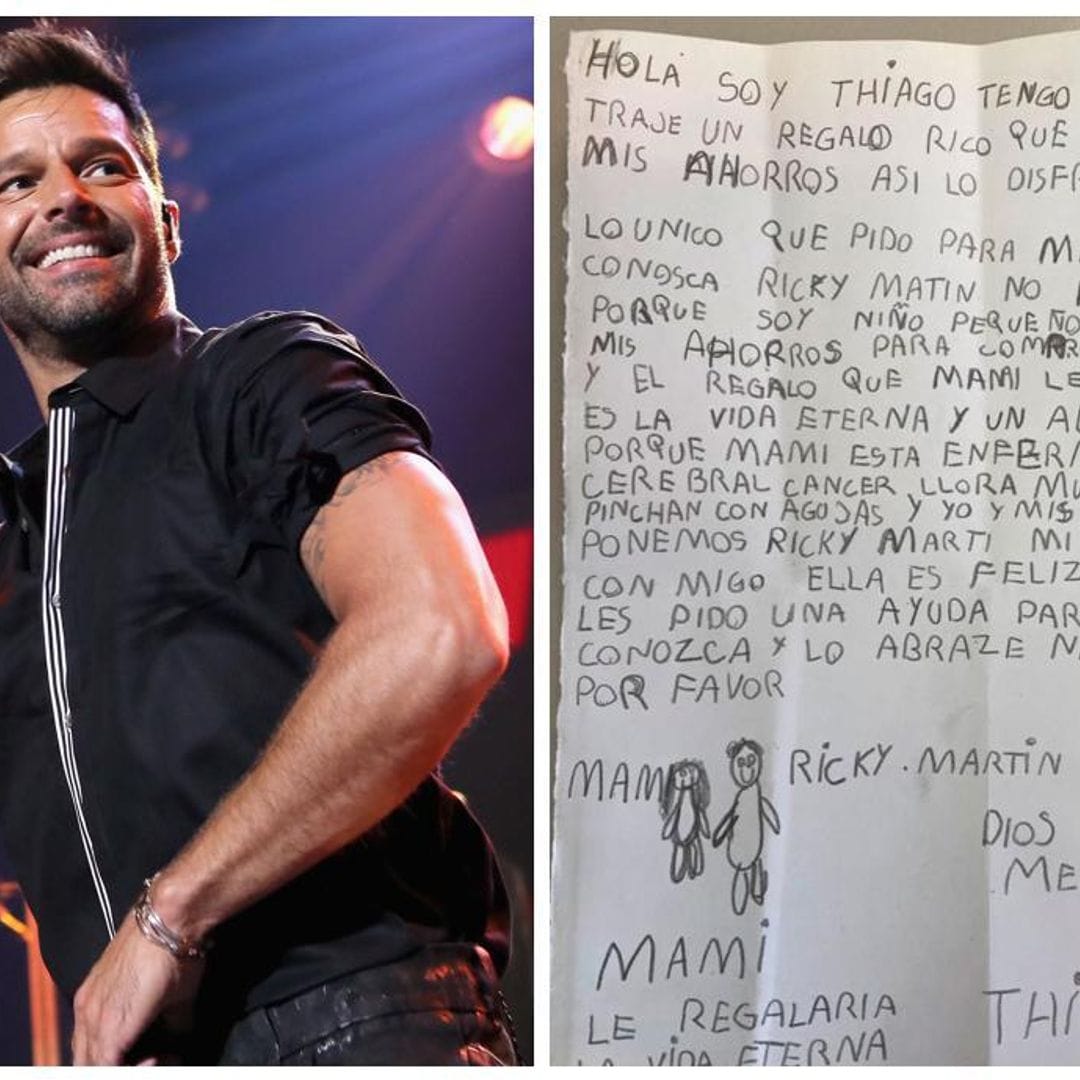 HOLA SOY THIAGO TENGO
TRAJE UN REGALO RICO QUE
MIS AHORROS ASI LO DISFR
LO UNICO QUE PIDO PARA M
CONOSCA RICKY MATIN NO
PORQUE SOY NIÑO PEQUEÑO
MIS AHORROS PARA COMPR
Y EL REGALO QUE MAMI LE
ES LA VIDA ETERNA Y UN A
PORQUE MAMI ESTA ENFERM
CEREBRAL CANCER LLORA MU
PINCHAN CON AGUJAS Y YO Y MIS
PONEMOS RICKY MARTI MI
CON MIGO ELLA ES FELIZ
LES PIDO UNA AYUDA PAR
CONOZCA Y LO ABRAZE N
POR FAVOR
MAMI RICKY. MARTIN
DIOS
ME
MAMI
LE REGALARIA THI
LA VIDA ETERNA